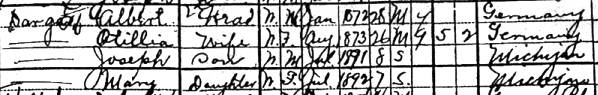 Albert Head W M Jan 1872 28 M 4 Germany
Otillia Wife W F Aug 1873 26 M 9 5 2 Germany
Joseph Son W M Jul 1891 8 S Michigan
Mary Daughter W F Jul 1892 7 S